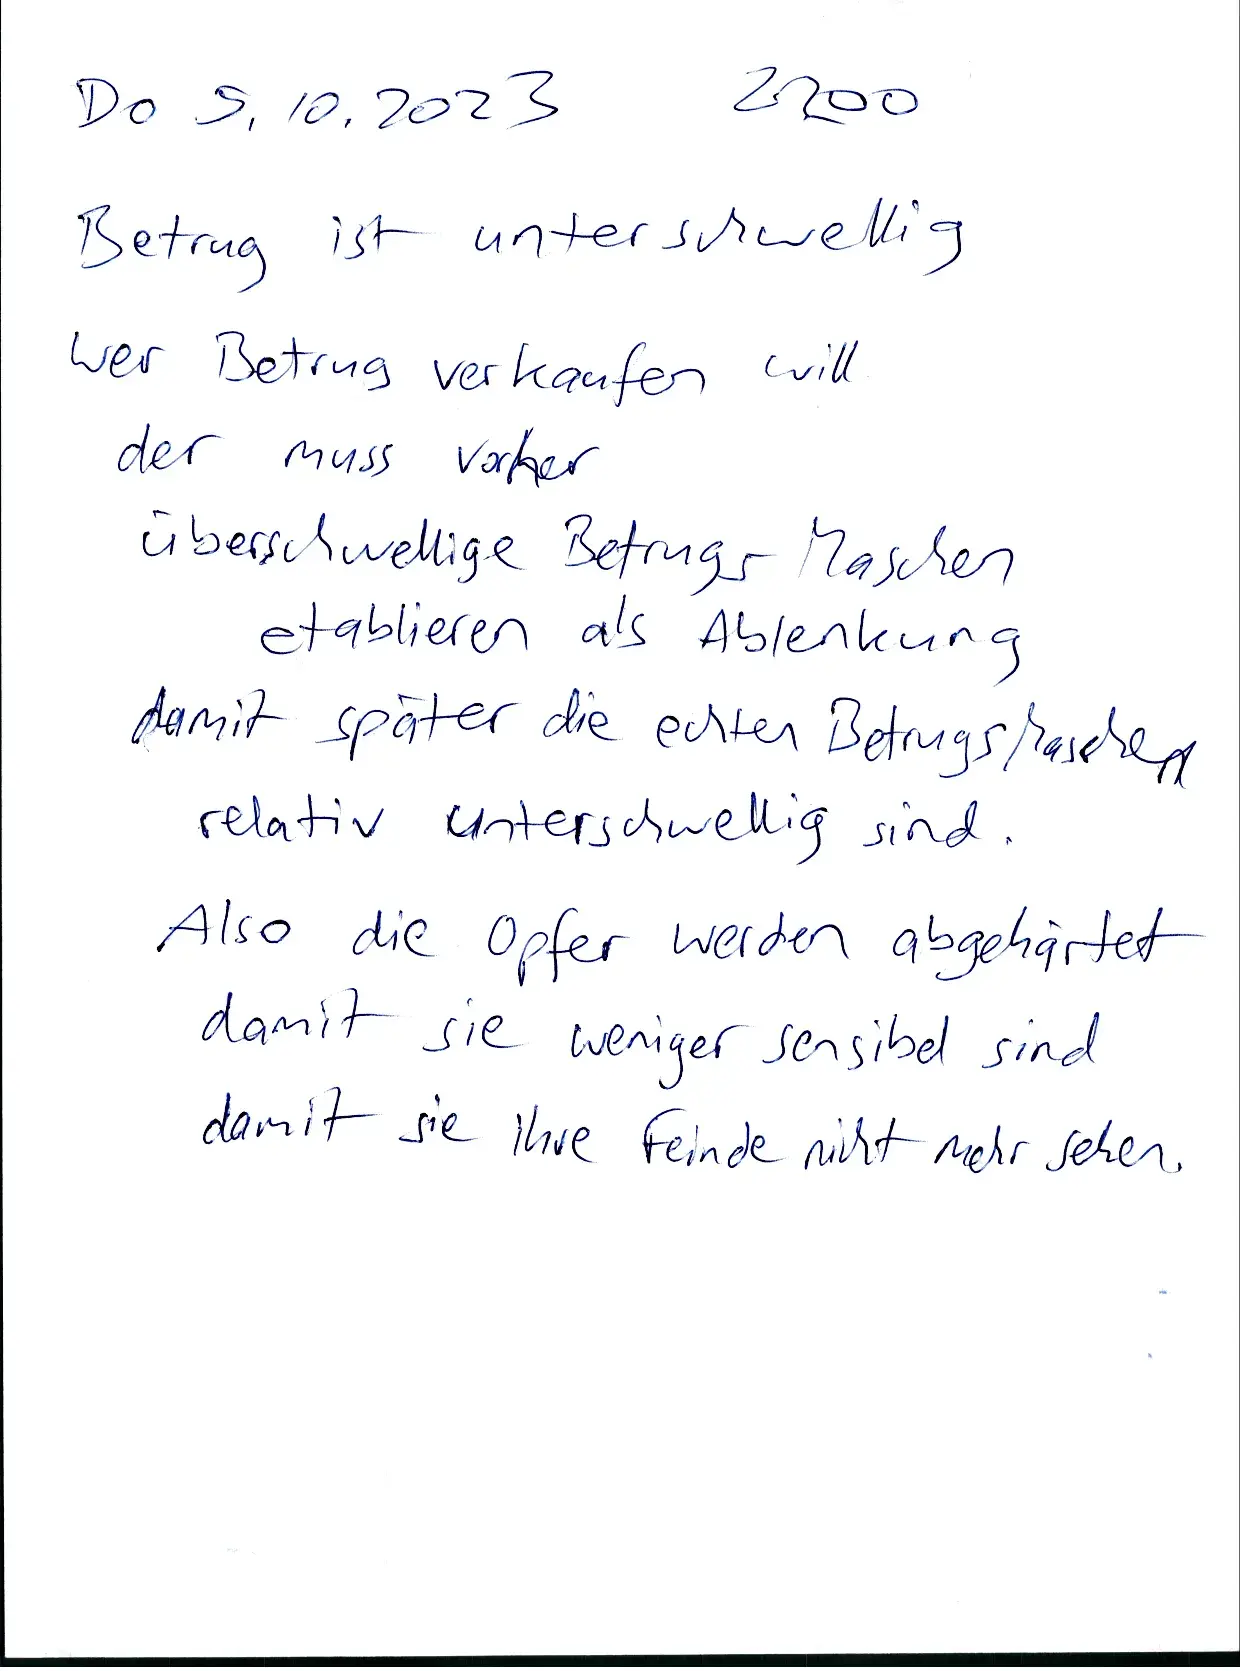 Do 5.10.2023 2200
Betrug ist unterschwellig
wer Betrug verkaufen will
der muss vorher
überschwellige Betrugs Maschen
etablieren als Ablenkung
damit später die echten Betrugsmaschen
relativ unterschwellig sind.
Also die Opfer werden abgehärtet
damit sie weniger sensibel sind
damit sie ihre Feinde nicht mehr sehen.